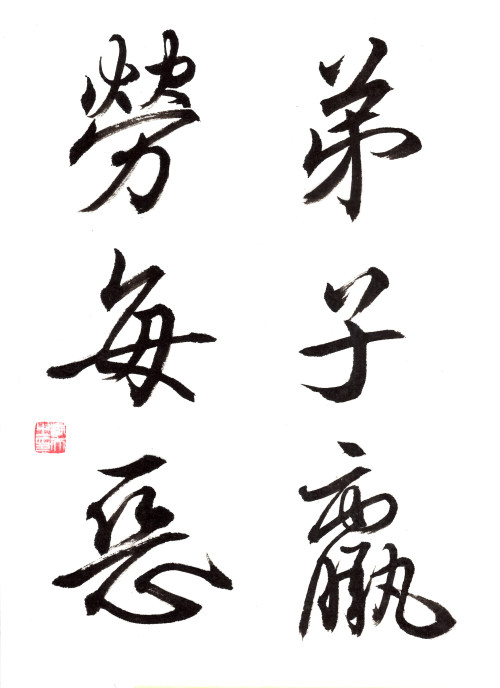 弟子羸
勞每惡